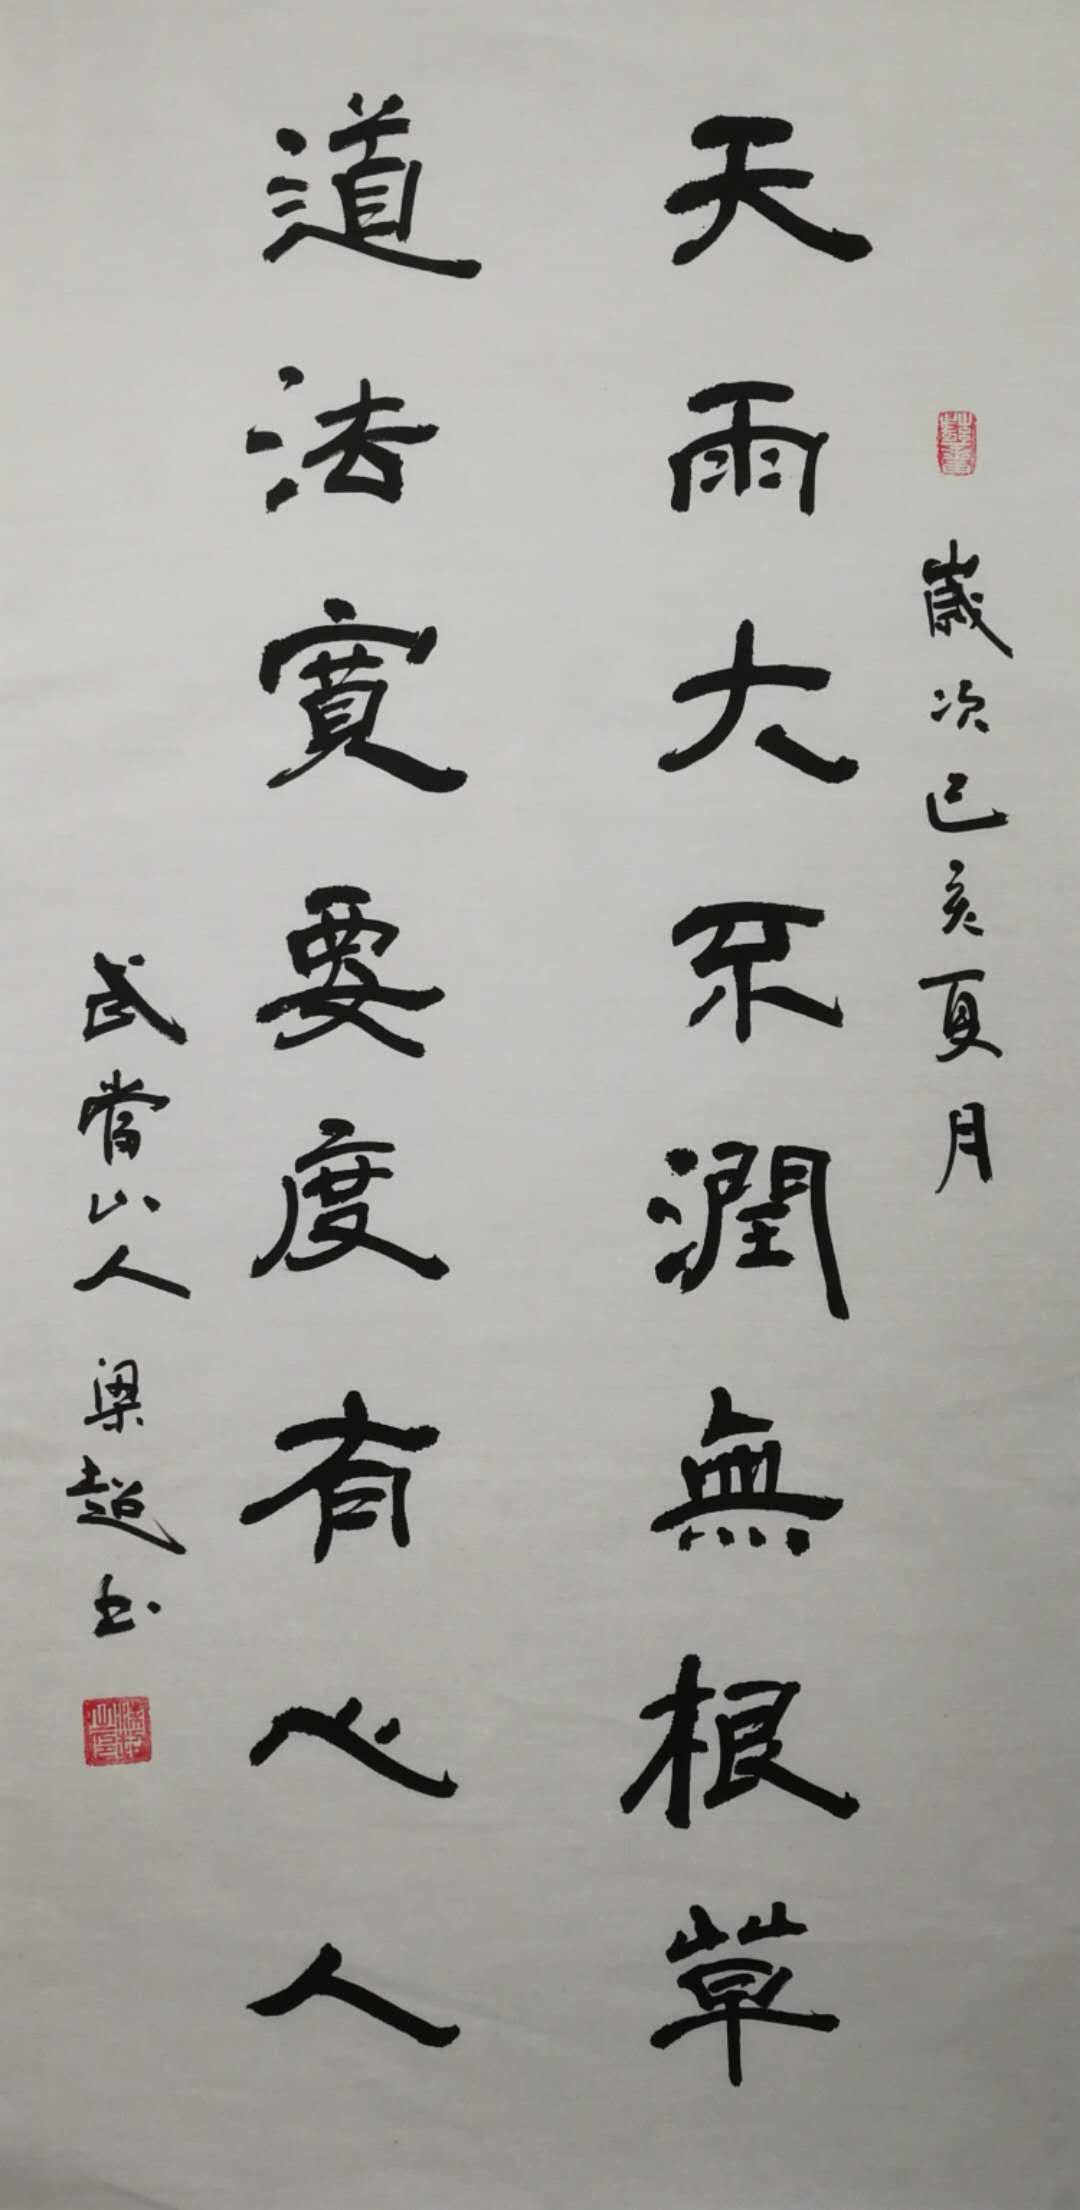 歲次己亥夏月
天雨大不潤無根草
道法寬要度有心人
武當山人 梁超书